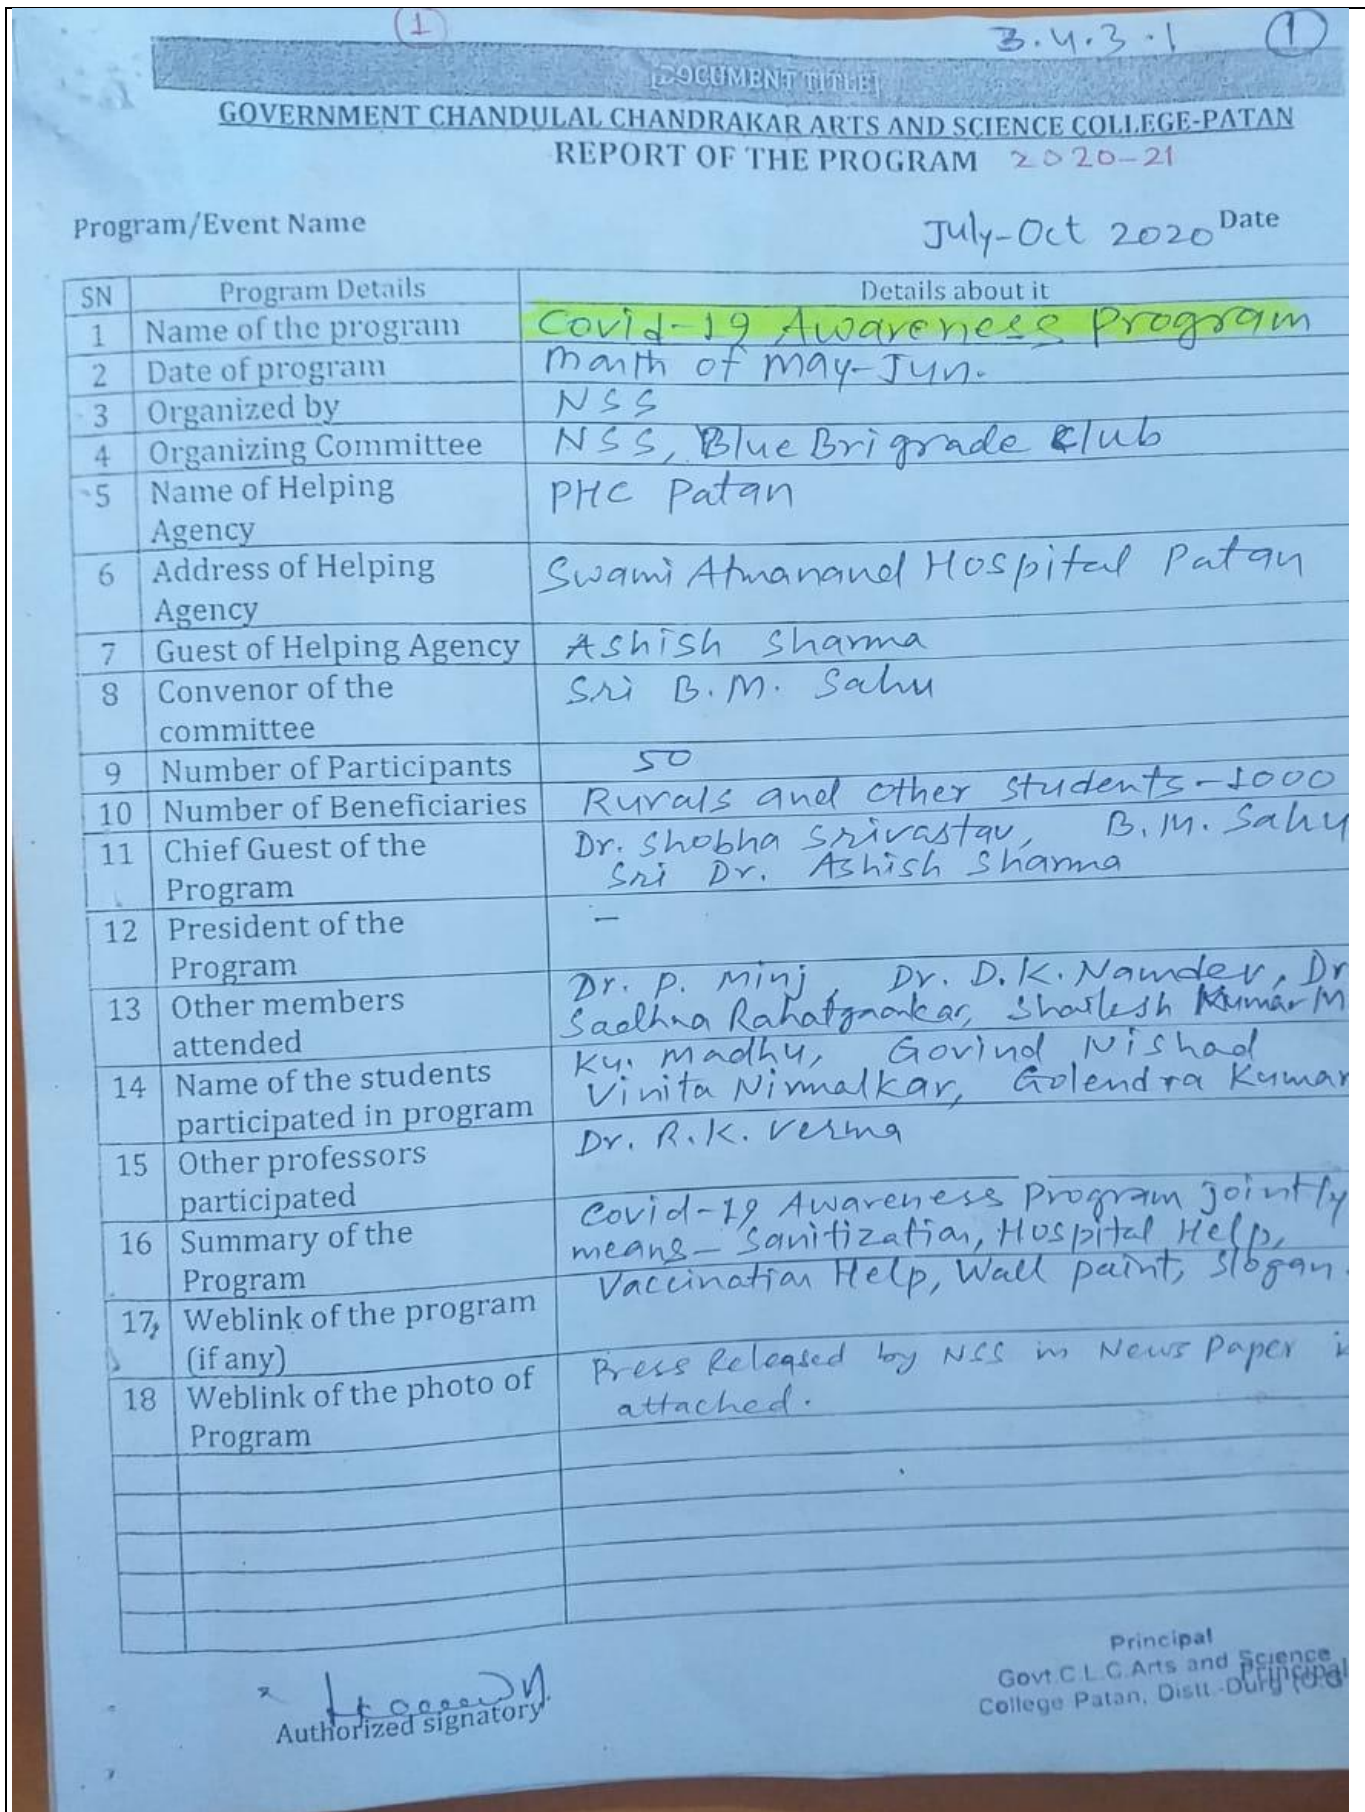 1
3.4.3.1 1
[DOCUMENT TITLE]
GOVERNMENT CHANDULAL CHANDRAKAR ARTS AND SCIENCE COLLEGE-PATAN
REPORT OF THE PROGRAM 2020-21
Program/Event Name July-Oct 2020 Date
SN Program Details Details about it
1 Name of the program Covid-19 Awareness Program
2 Date of program Month of May-Jun.
3 Organized by NSS
4 Organizing Committee NSS, Blue Brigrade Club
5 Name of Helping PHC Patan
Agency
6 Address of Helping Swami Atmanand Hospital Patan
Agency
7 Guest of Helping Agency Ashish Sharma
8 Convenor of the Sri B.M. Sahu
committee
9 Number of Participants 50
10 Number of Beneficiaries Rurals and other students-1000
11 Chief Guest of the Dr. Shobha Srivastav, B.M. Sahu
Program Sri Dr. Ashish Sharma
12 President of the -
Program
13 Other members Dr. P. Minj, Dr. D.K. Namdev, Dr
attended Sadhna Rahatgaonkar, Shailesh Kumar M
14 Name of the students Ku. Madhu, Govind Nishad
participated in program Vinita Nirmalkar, Golendra Kumar
15 Other professors Dr. R.K. Verma
participated
16 Summary of the Covid-19 Awareness Program jointly
Program means- Sanitization, Hospital Help,
Vaccination Help, Wall paint, Slogan.
17, Weblink of the program
(if any)
18 Weblink of the photo of Press Released by NSS in News Paper is
Program attached.
Principal
Govt.C.L.C.Arts and Science
Principal
College Patan, Distt.-Durg (C.G
Authorized signatory